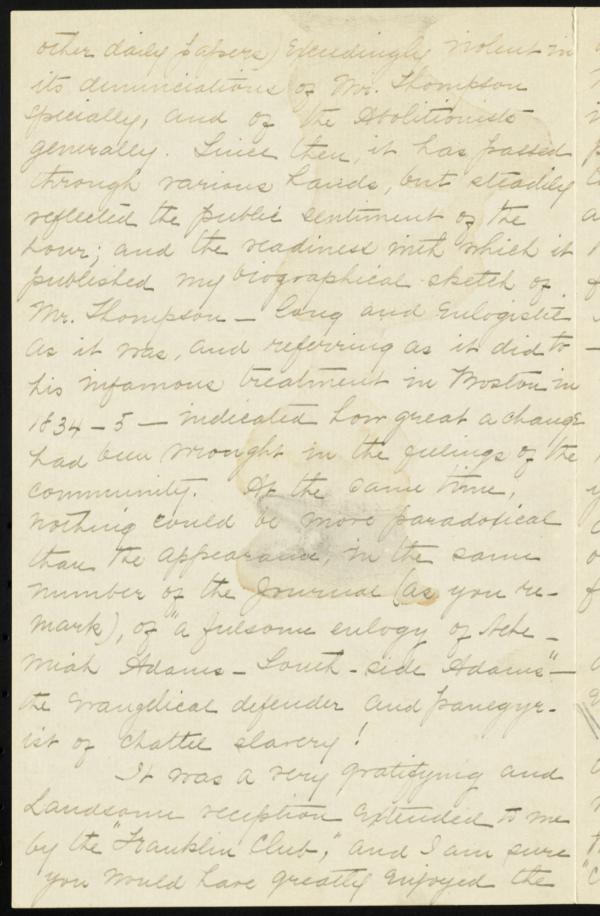 other daily papers) exceedingly violent in
its denunciations of Mr. Thompson
specially, and of the Abolitionists
generally. Since then, it has passed
through various hands, but steadily
reflected the public sentiment of the
hour; and the readiness with which it
published my biographical sketch of
Mr. Thompson — long and eulogistic
as it was, and referring as it did to
his infamous treatment in Boston in
1834–5 — indicated how great a change
had been wrought in the feelings of the
community. At the same time,
nothing could be more paradoxical
than the appearance, in the same
number of the Journal (as you re-
mark), of "a fulsome eulogy of Nehe-
miah Adams — South-side Adams" —
the Evangelical defender and panegyr-
ist of chattel slavery!
It was a very gratifying and
handsome reception extended to me
by the "Franklin Club," and I am sure
you would have greatly enjoyed the